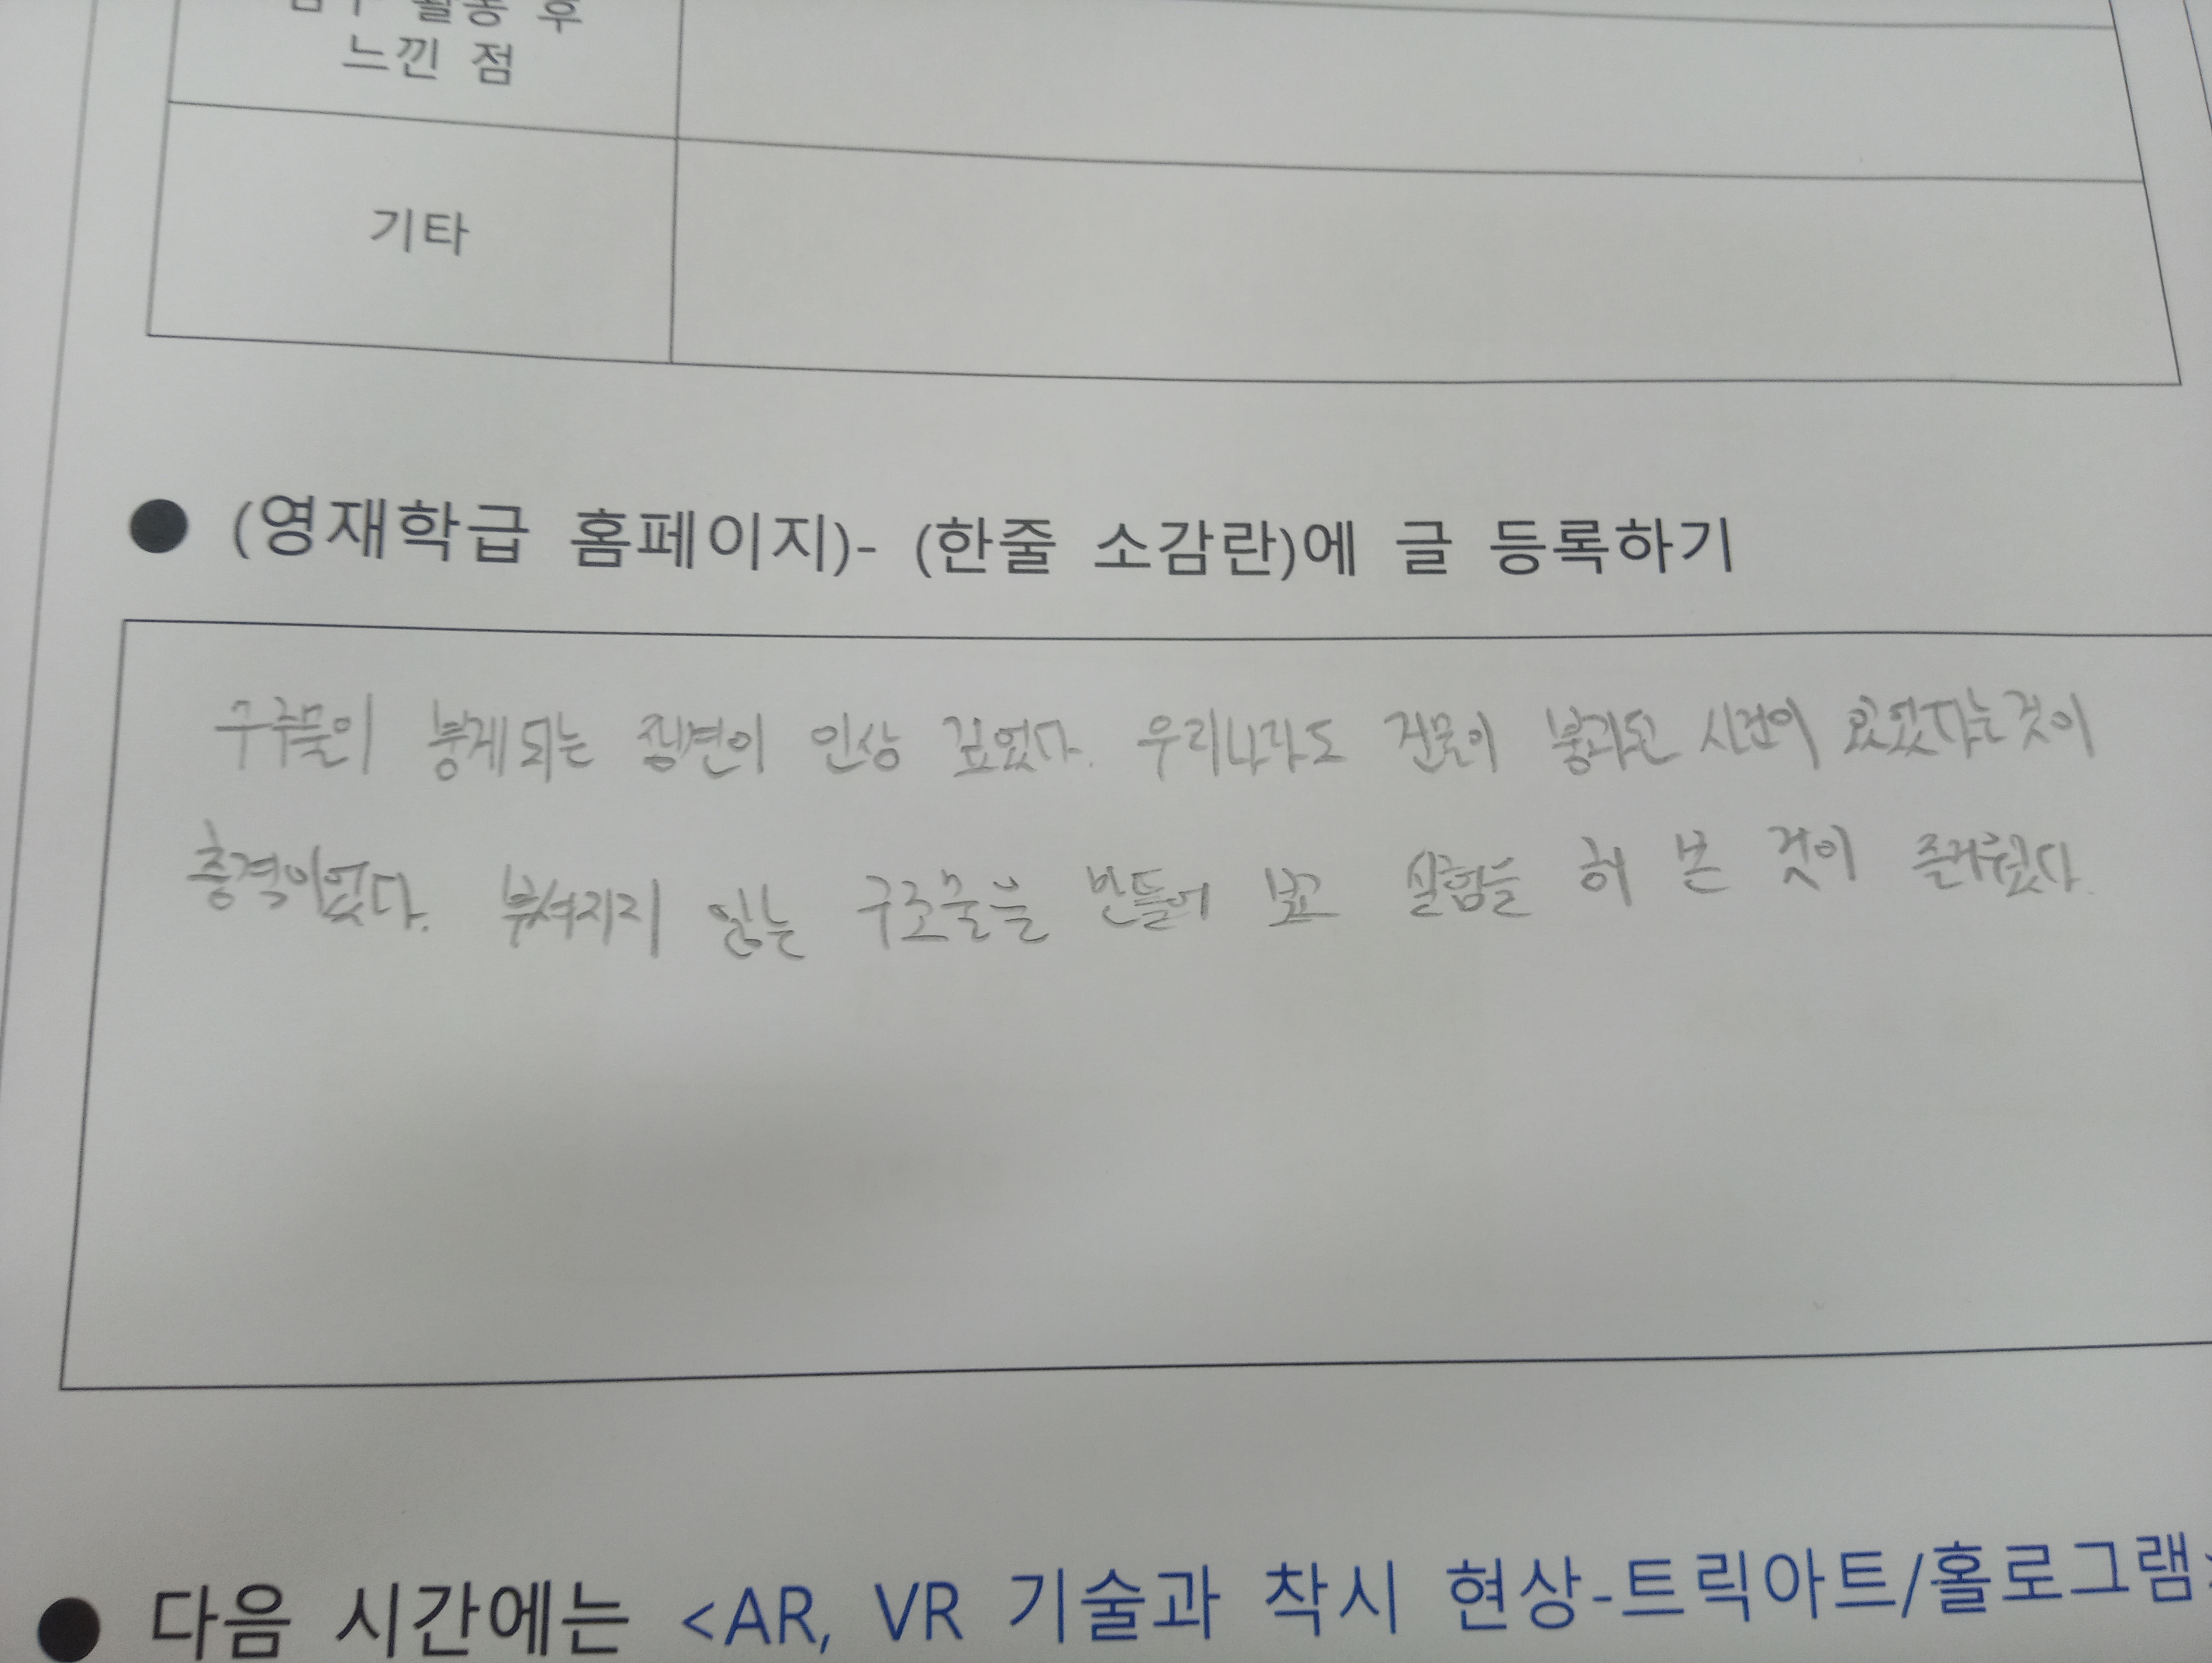 활동 후
느낀 점
기타
● (영재학급 홈페이지)- (한줄 소감란)에 글 등록하기
붕게되는 장면이 인상 깊었다. 우리나라도 건물이 붕괴된 시건이 있었다는것이
충격이었다. 부셔지지 않는 구조물을 만들어 보고 실험을 해 본 것이 즐거웠다.
● 다음 시간에는 <AR, VR 기술과 착시 현상-트릭아트/홀로그램>